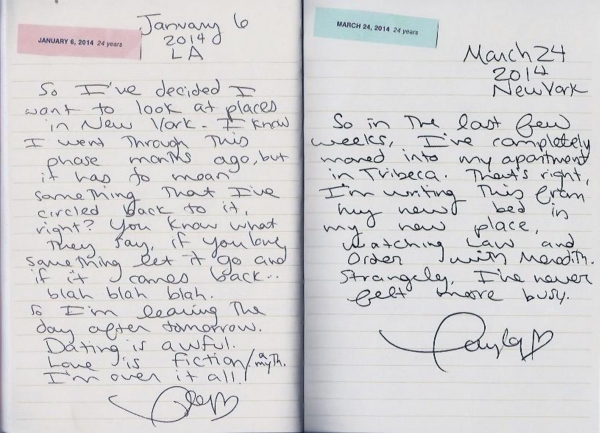 JANUARY 6, 2014 24 years
January 6
2014
LA
So I've decided I
want to look at places
in New York. I know
I went through this
phase months ago, but
it has to mean
something that I've
circled back to it,
right? You know what
they say, if you love
something let it go and
if it comes back..
blah blah blah.
So I'm leaving the
day after tomorrow.
Dating is awful.
Love is fiction/a myth.
I'm over it all!
MARCH 24, 2014 24 years
March 24
2014
New York
So in the last few
weeks, I've completely
moved into my apartment
in Tribeca. That's right,
I'm writing this from
my new bed in
my new place,
watching Law and
Order with Meredith.
Strangely, I've never
felt more busy.